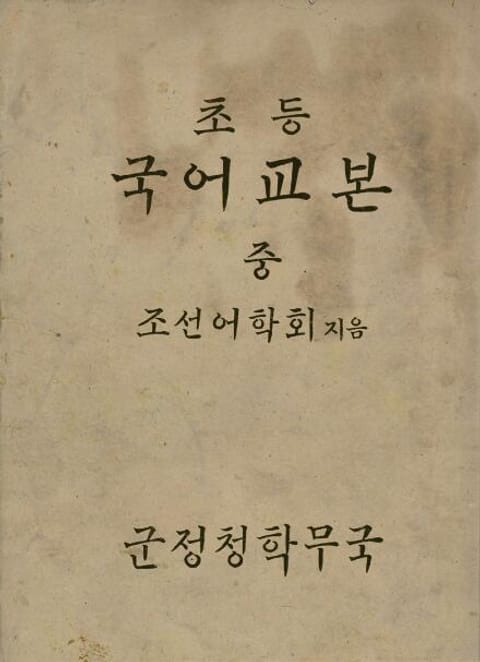 초 등
국어교본
중
조선어학회 지음
군정청학무국